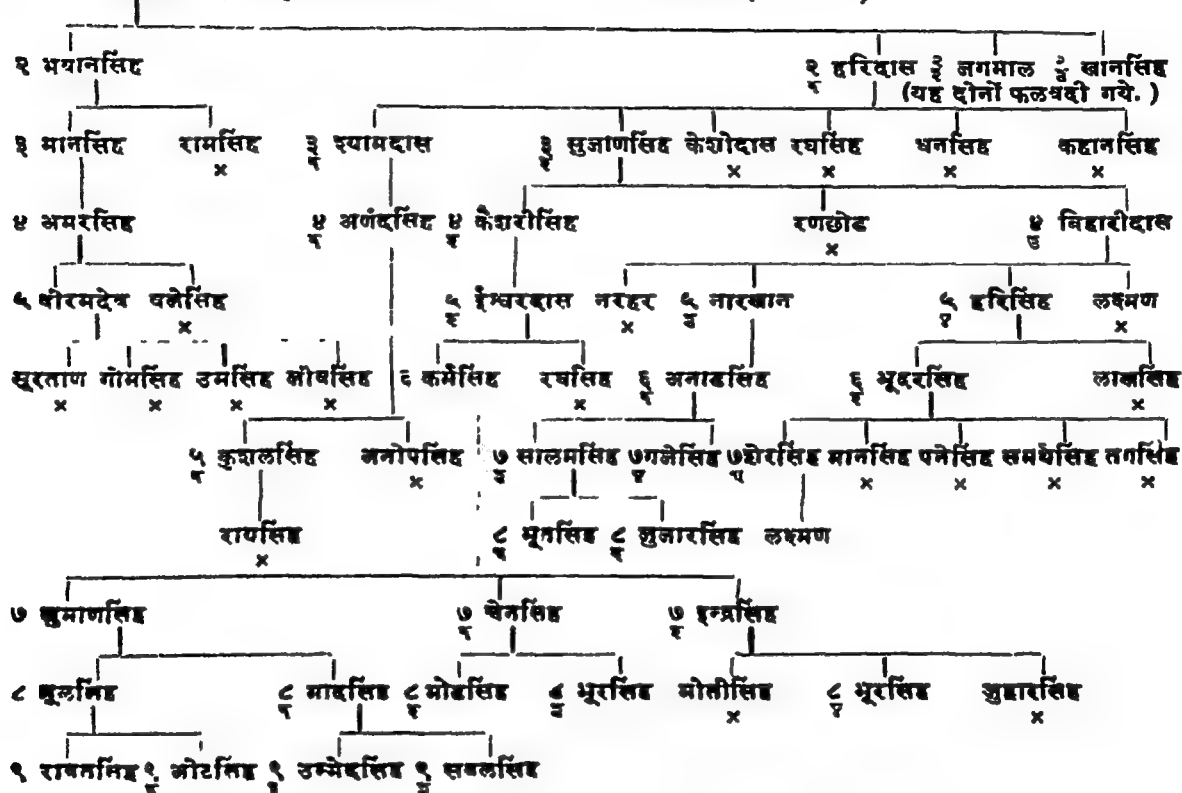 २ भयानसिंह २/१ हरिदास ३/१ जगमाल खानसिंह
(यह दोनों फलश्रदी गये.)
३ मानसिंह रामसिंह ३/१ श्यामदास ३/२ सुजाणसिंह केशोदास रघसिंह धनसिंह कहानसिंह
× × × × ×
४ अमरसिंह ४/१ अणंदसिंह ४/२ केशरीसिंह रणछोड ४/३ बिहारीदास
×
५ वीरमदेव पनेसिंह ५/२ ईश्वरदास नरहर ५/३ नारखान ५/४ हरिसिंह लक्ष्मण
× × ×
सूरताण गोमसिंह उमसिंह ६ कर्मसिंह रघसिंह ६/३ अनाडसिंह ६/४ भूदरसिंह लालसिंह
× × × × × ×
५/१ कुशलसिंह अनोपसिंह ७/३ सालमसिंह ७/४ गजेसिंह ७/५ शेरसिंह मानसिंह पनेसिंह समर्थसिंह तगसिंह
× × × × ×
रायसिंह भूतसिंह जुजारसिंह लक्ष्मण
×
७ खुमाणसिंह ७/१ चेनसिंह ७/२ इन्द्रसिंह
८ मूलसिंह ८/१ मादसिंह ८/२ मोडसिंह ८/३ भूरसिंह मोतीसिंह ८/४ भूरसिंह जुहारसिंह
× ×
९ रावतसिंह उम्मेदसिंह सबलसिंह